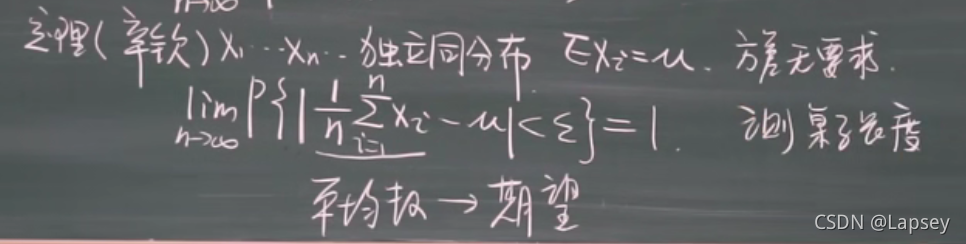 n→∞
定理(辛钦) X₁…Xₙ… 独立同分布 EXᵢ=μ. 方差无要求.
lim n→∞ P{|1/n Σ i=1 n Xᵢ-μ|<ε}=1. 测桌子长度
平均 → 期望
CSDN @Lapsey